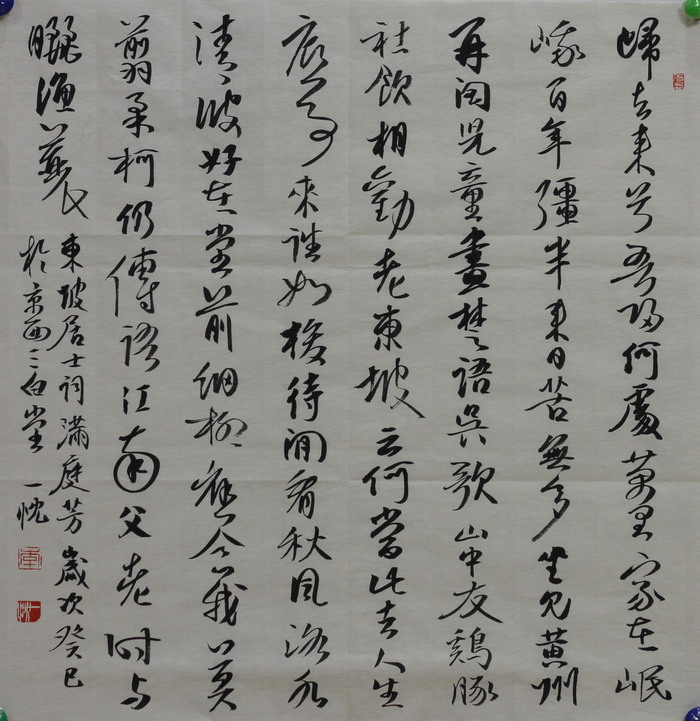 歸去来兮吾歸何處萬里家在岷
峨百年彊半来日苦無多坐見黄州
再閏児童盡楚語吳歌山中友鷄豚
社飲相勸老東坡云何當此去人生
底事來往如梭待閒看秋風洛水
清波好在堂前細柳應念我莫
翦柔柯仍傳語江南父老時与
曬漁蓑
東坡居士詞滿庭芳歲次癸巳
於京西三白堂一忱